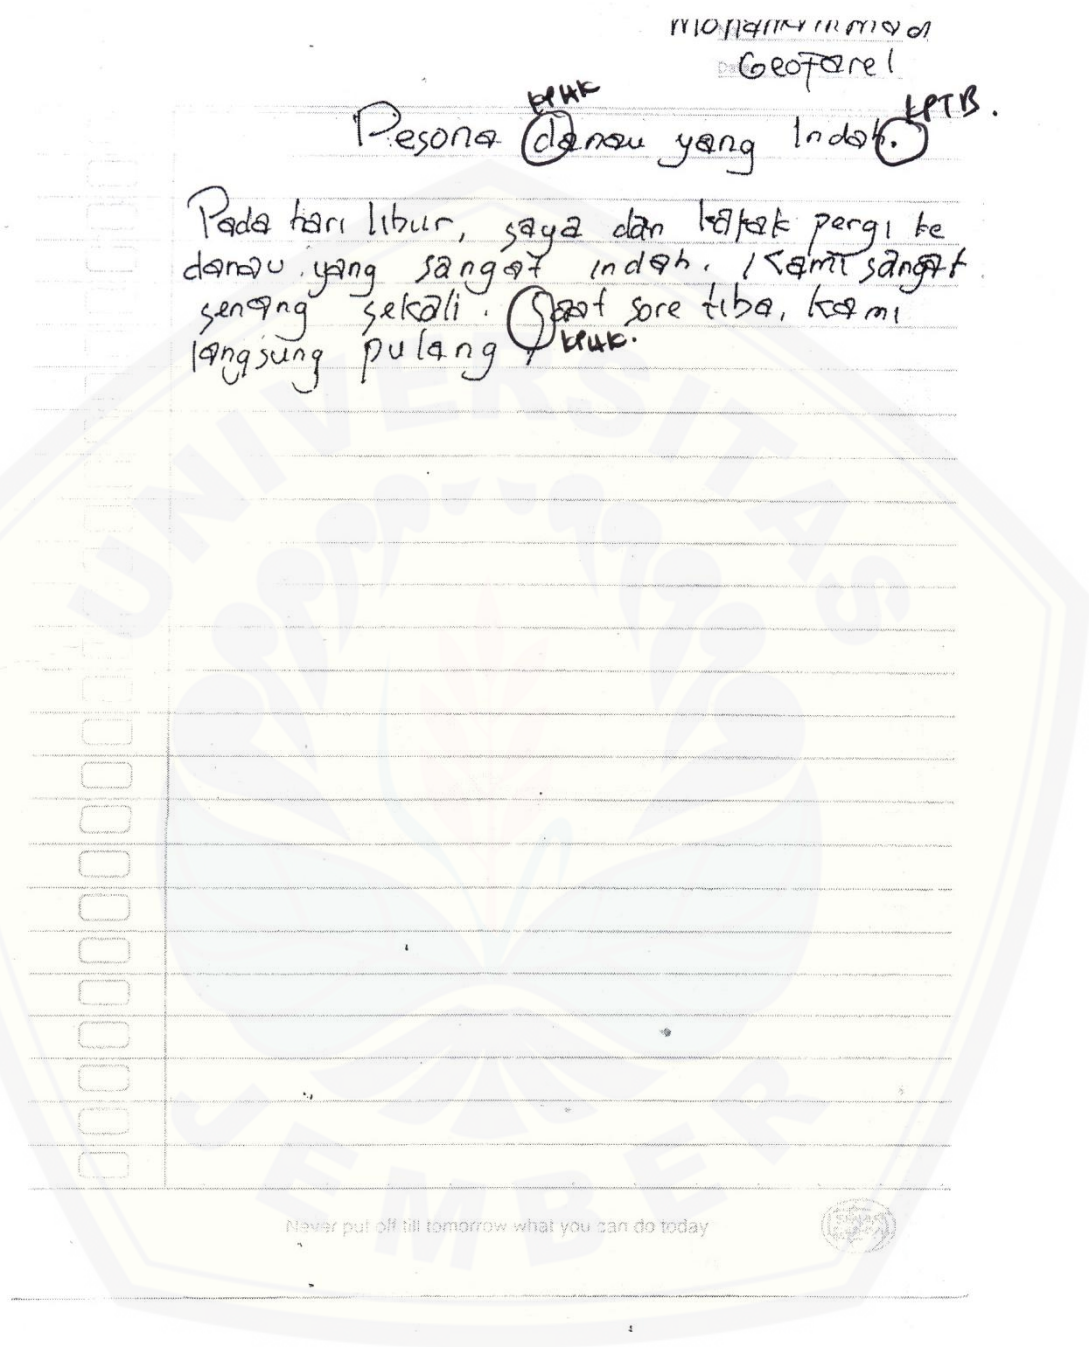 Mohammmad
Geofarel
KPHK
KPTB.
Pesona danau yang Indah.
Pada hari libur, saya dan kakak pergi ke
danau yang sangat indah. Kami sangat
senang sekali. saat sore tiba, kami
KPHK.
langsung pulang
UNIVERSITAS
JEMBER
Never put off till tomorrow what you can do today